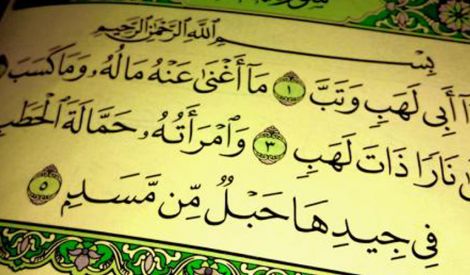 بِسْمِ ٱللَّهِ ٱلرَّحْمَٰنِ ٱلرَّحِيمِ
أَبِى لَهَبٍ وَتَبَّ ١ مَآ أَغْنَىٰ عَنْهُ مَالُهُۥ وَمَا كَسَبَ
نَارًا ذَاتَ لَهَبٍ ٣ وَٱمْرَأَتُهُۥ حَمَّالَةَ ٱلْحَطَبِ
فِى جِيدِهَا حَبْلٌ مِّن مَّسَدٍۭ ٥